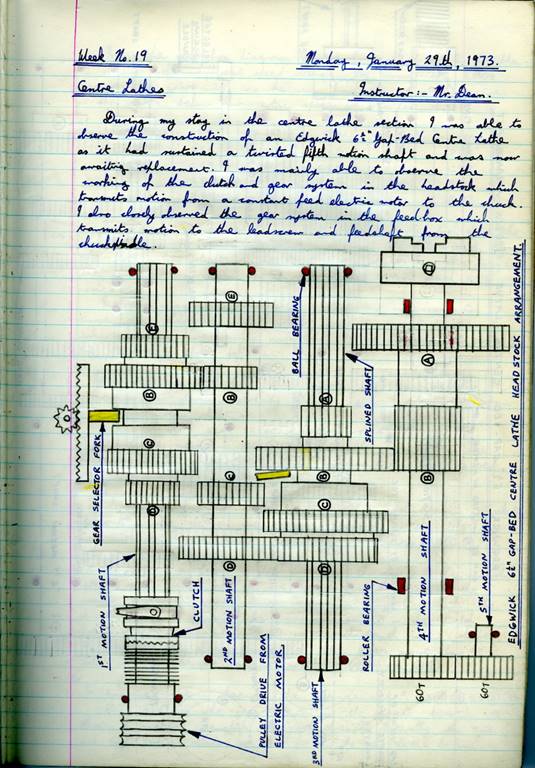 Week No. 19
Monday, January 29th, 1973.
Centre Lathes
Instructor:- Mr. Dean.
During my stay in the centre lathe section I was able to
observe the construction of an Edgwick 6½" Gap-Bed Centre Lathe
as it had sustained a twisted fifth motion shaft and was now
awaiting replacement. I was mainly able to observe the
working of the clutch and gear system in the headstock which
transmits motion from a constant feed electric motor to the chuck.
I also closely observed the gear system in the feedbox which
transmits motion to the leadscrew and feedshaft from the
GEAR SELECTOR FORK
1ST MOTION SHAFT
CLUTCH
2ND MOTION SHAFT
PULLEY DRIVE FROM
ELECTRIC MOTOR
BALL BEARING
SPLINED SHAFT
3RD MOTION SHAFT
ROLLER BEARING
4TH MOTION SHAFT
5TH MOTION SHAFT
60T
60T
E
B
C
D
E
B
C
D
A
B
C
D
A
B
EDGWICK 6½" GAP-BED CENTRE LATHE HEADSTOCK ARRANGEMENT.